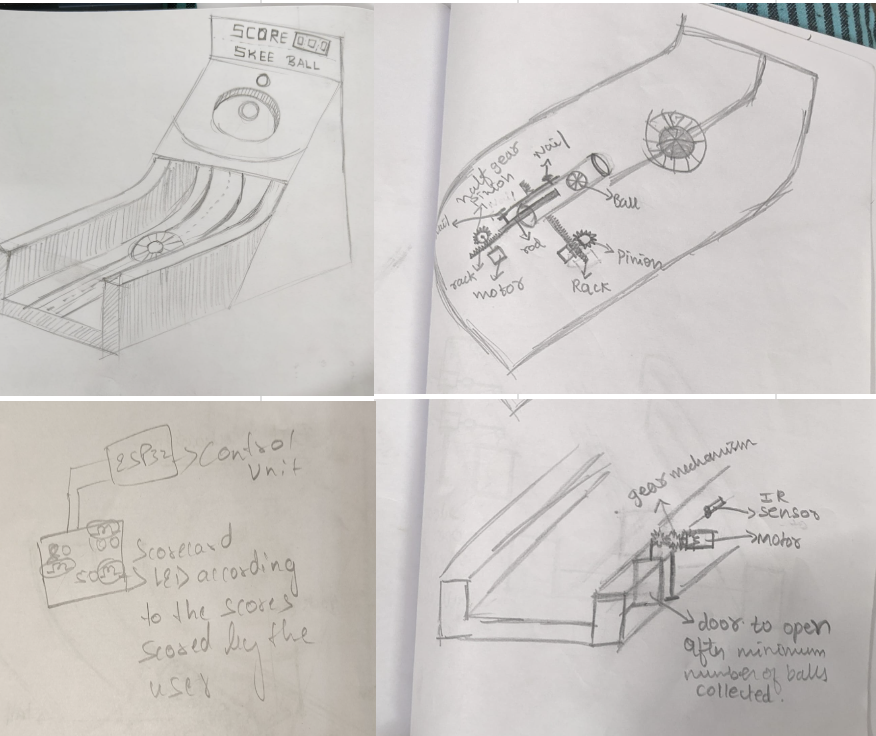 SCORE 000
SKEE BALL
half gear
pinion
Nail
Ball
rod
rack
motor
Pinion
Rack
ESP32
Control
Unit
80
100
50
Scorecard
LED according
to the scores
scored by the
user
gear mechanism
IR
sensor
motor
door to open
after minimum
number of balls
collected.